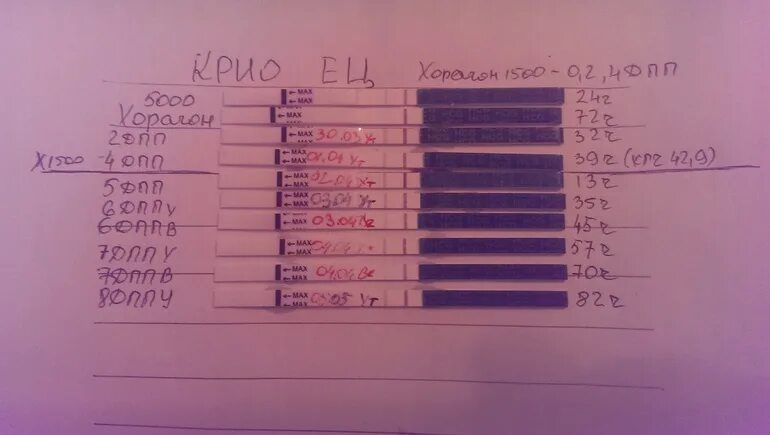 КРИО ЕЦ Хорагон 1500 - 0,2,4 ДПП
5000 Хорагон ←MAX ←MAX 24ч
←MAX 72ч
2ДПП ←MAX 30.03 Ут 32ч
Х1500 -4 ДПП ←MAX 01.04 Ут 39ч (кгч 42,9)
5 ДПП ←MAX 02.04 Ут 13ч
6 ДППУ ←MAX 03.04 Ут 35ч
6 ДППВ ←MAX 03.04 Вг 45ч
7ДППУ ←MAX 04.04 Ут 57ч
7ДППВ ←MAX 04.04 Вг 70ч
8ДППУ ←MAX ←MAX 05.05 Ут 82ч